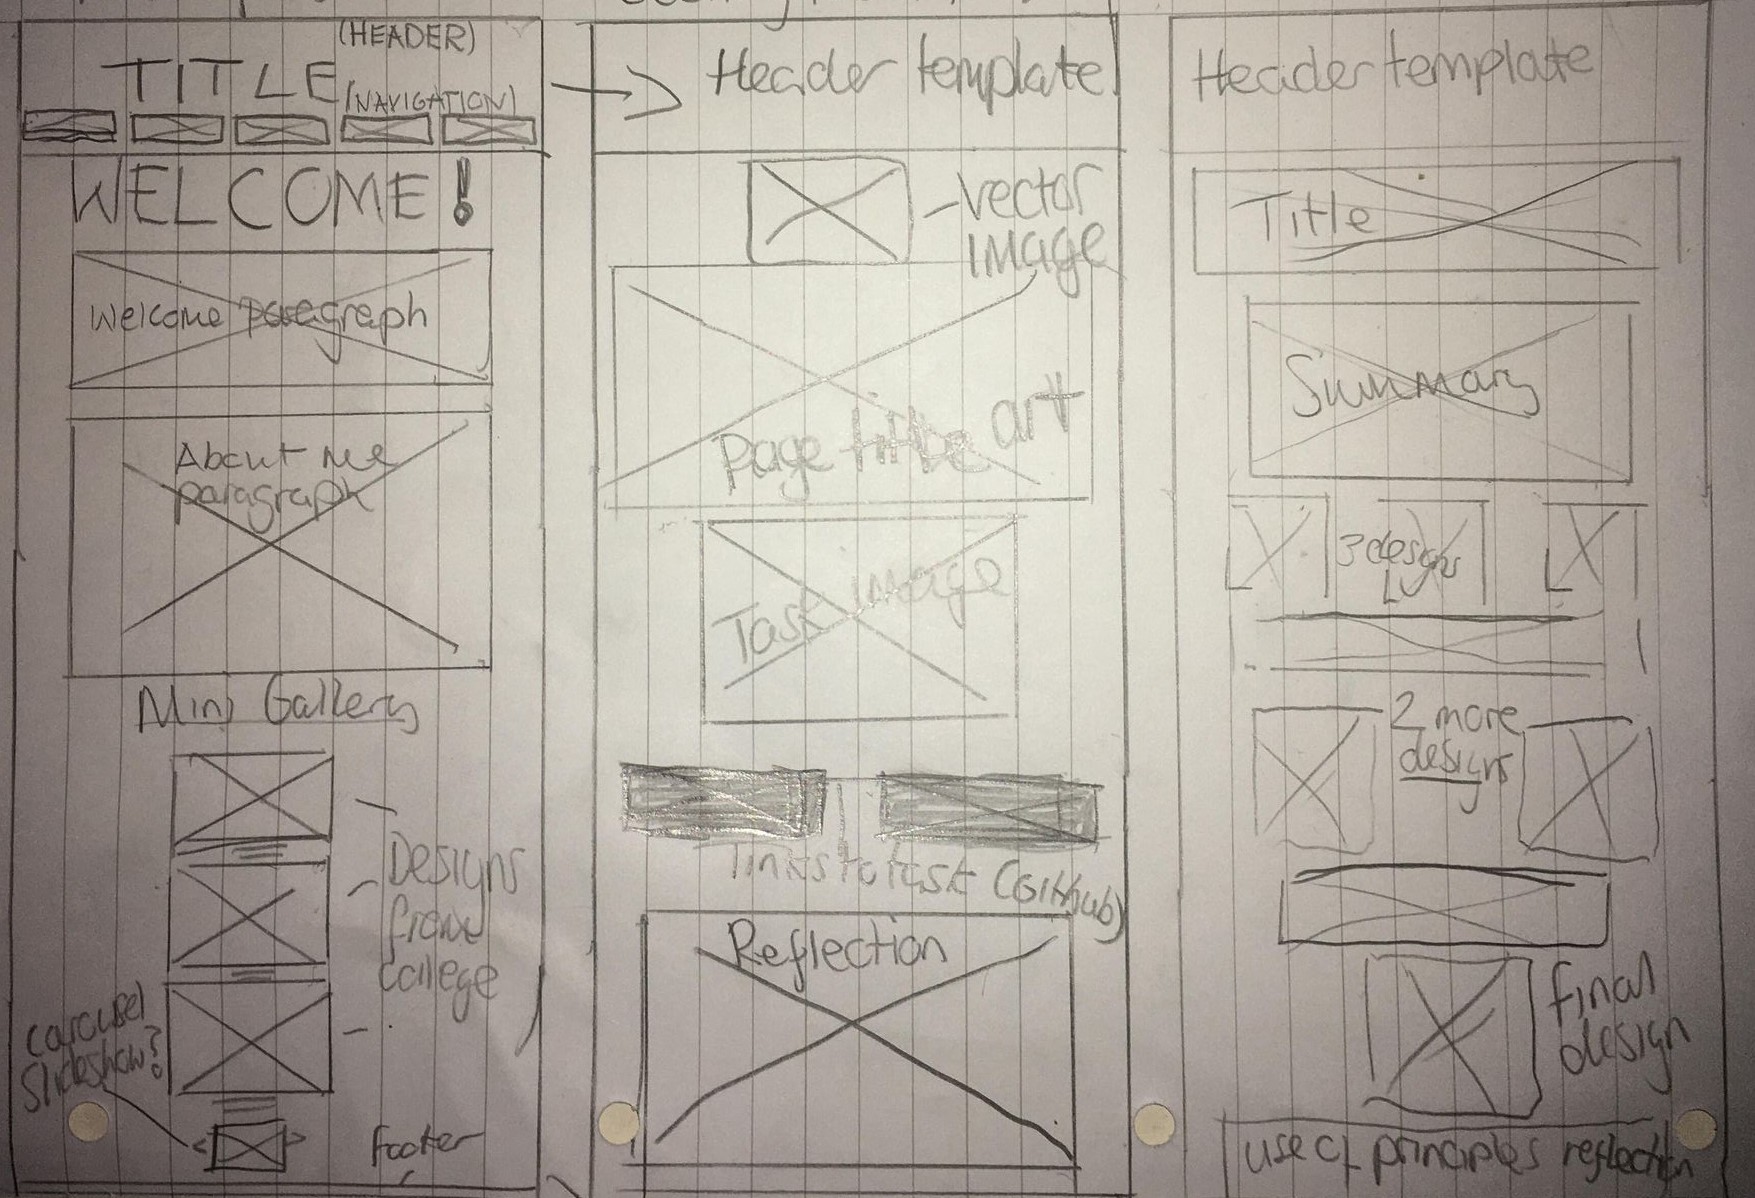 (HEADER)
TITLE
(NAVIGATION)
WELCOME!
Welcome paragraph
About me
paragraph
Mini Gallery
Designs
from
college
carousel
slideshow?
footer
Header template
vector
image
page title art
Task image
links to task (GitHub)
Reflection
Header template
Title
Summary
3 designs
2 more
designs
final
design
use of principles reflection